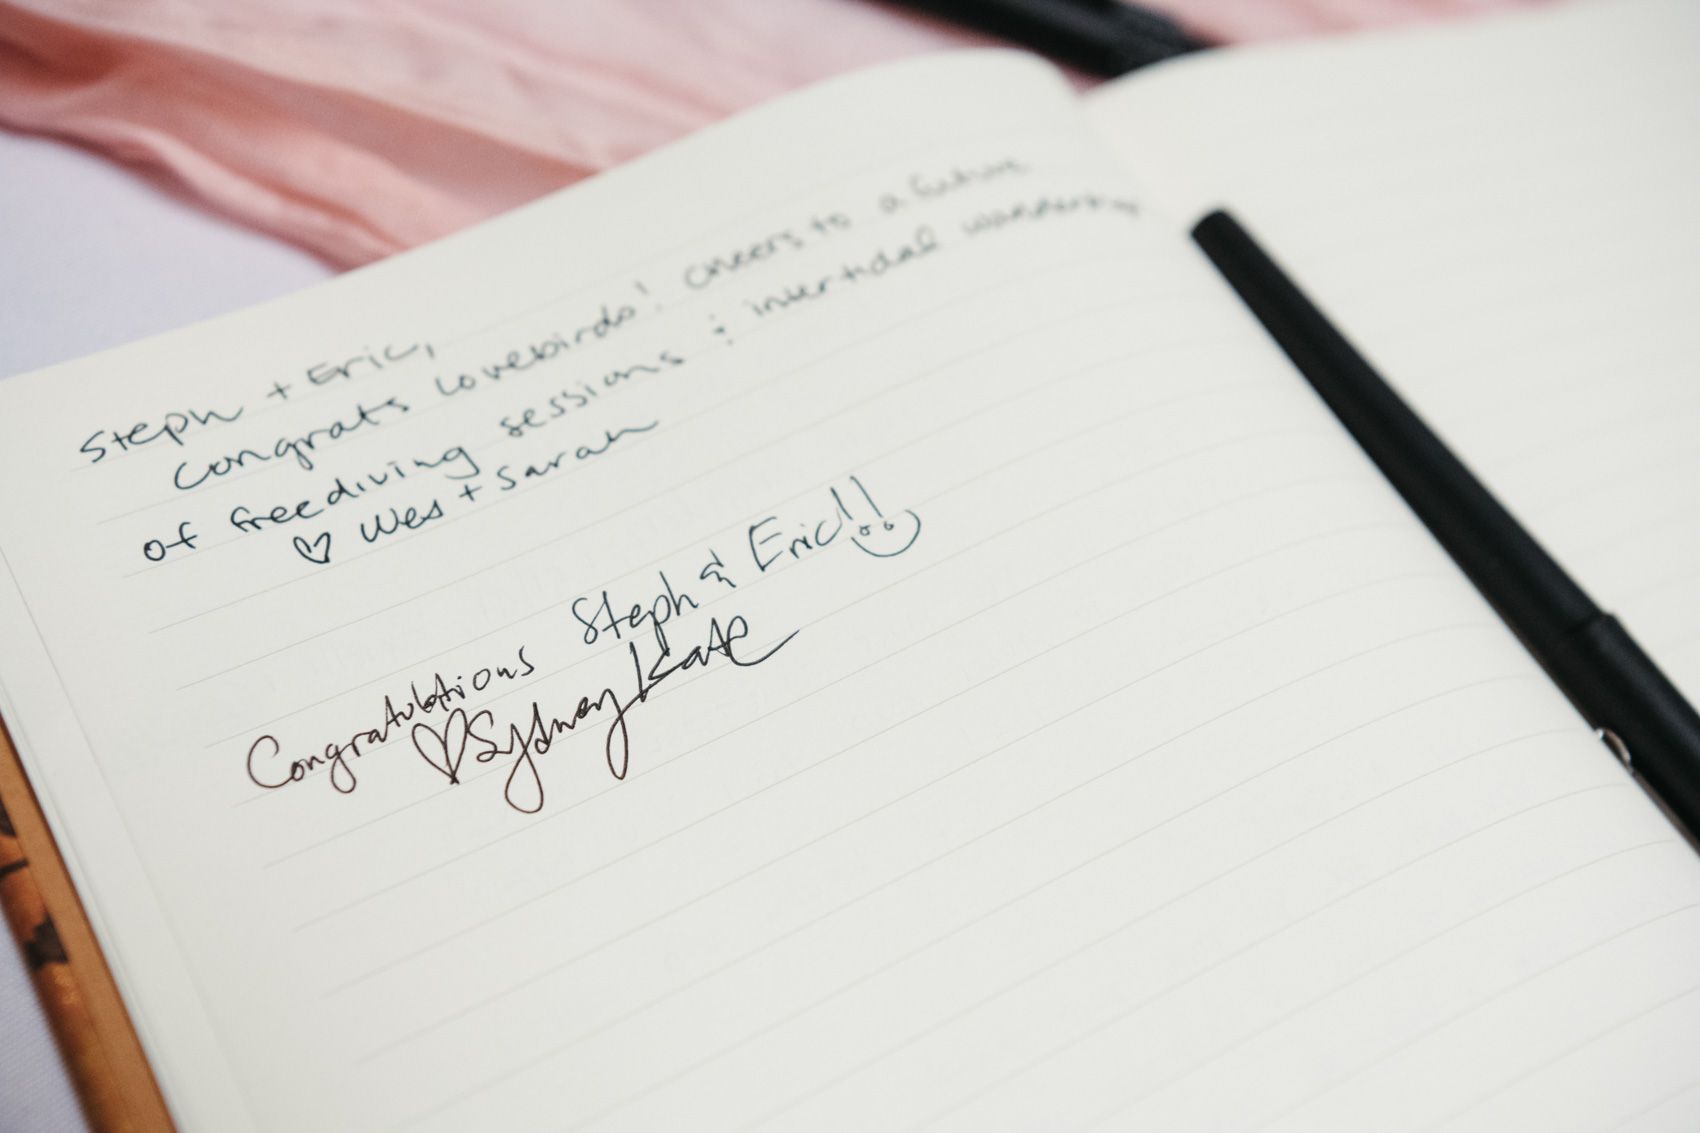 Steph + Eric,
Congrats lovebirds! Cheers to a future
of freediving sessions & intertidal wandering
♡ Wes + Sarah
Congratulations Steph & Eric!!
♡ Sydney Kate